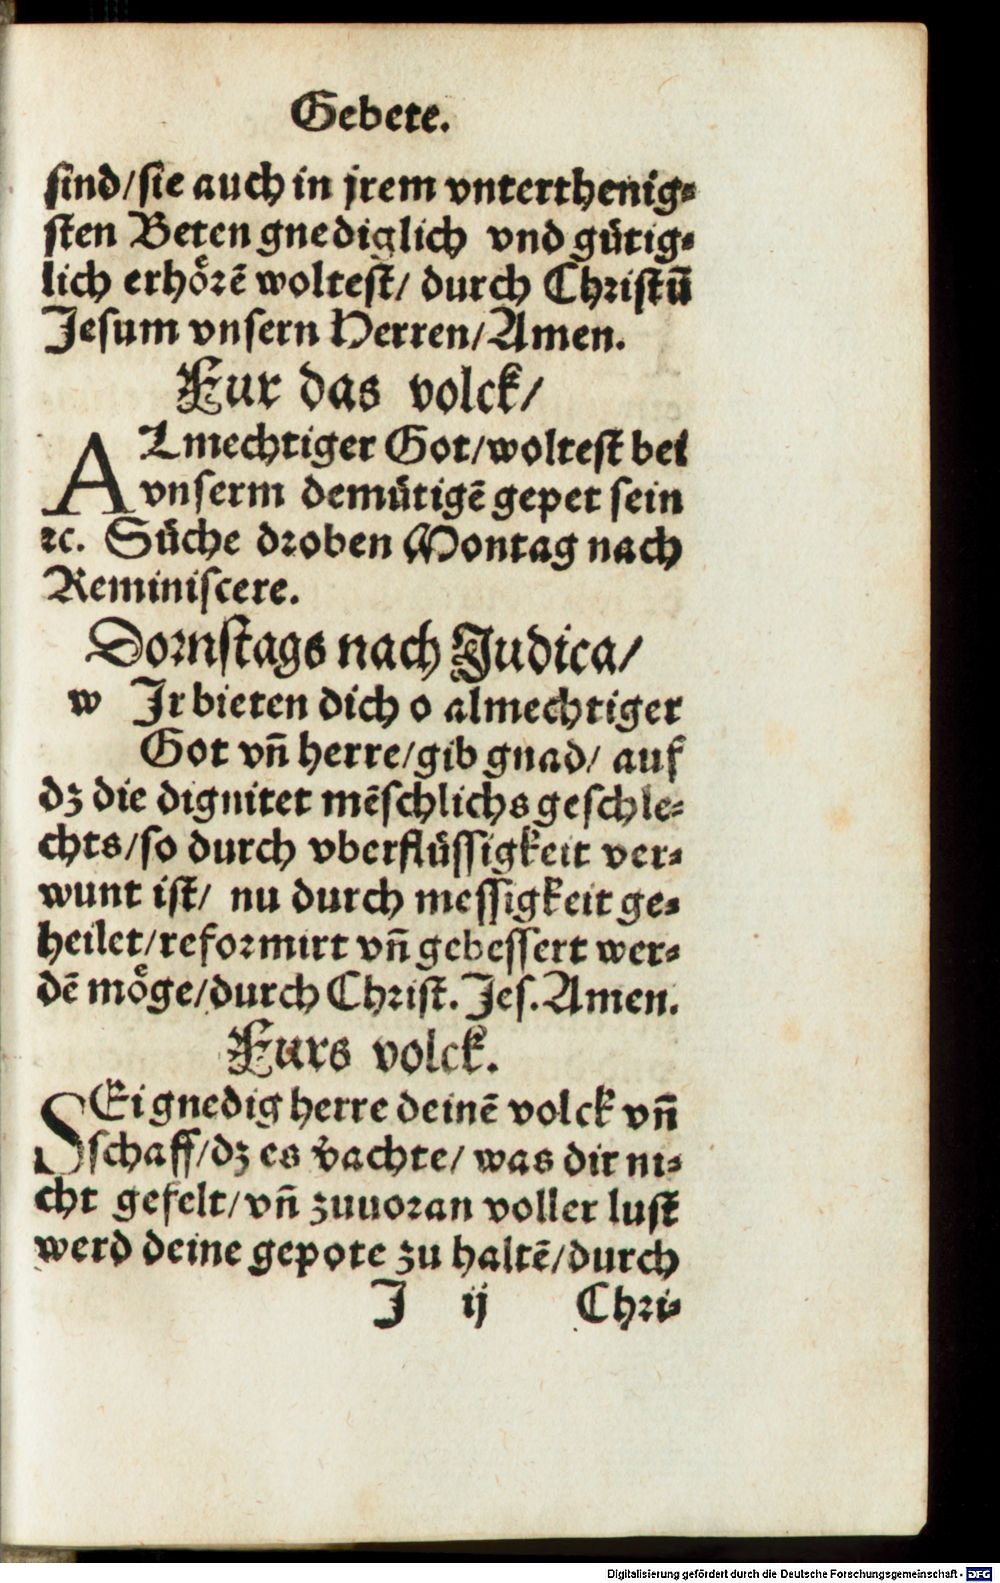 Gebete.
sind/sie auch in jrem vnterthenig⸗
sten Beten gnediglich vnd gütig⸗
lich erhoͤrẽ woltest/ durch Christũ
Jesum vnsern Herren/Amen.
Fur das volck/
ALmechtiger Got/woltest bei
vnserm demütigẽ gepet sein
ꝛc. Süche droben Montag nach
Reminiscere.
Dornstags nach Judica/
wIr bieten dich o almechtiger
Got vñ herre/gib gnad/ auf
dz die dignitet mẽschlichs geschle⸗
chts/so durch vberflüssigkeit ver⸗
wunt ist/ nu durch messigkeit ge⸗
heilet/reformirt vñ gebessert wer⸗
dẽ moͤge/durch Christ. Jes. Amen.
Furs volck.
SEi gnedig herre deinẽ volck vñ
schaff/dz es v̾achte/ was dir ni⸗
cht gefelt/vñ zuuoran voller lust
werd deine gepote zu haltẽ/durch
J ij Chri⸗
Digitalisierung gefördert durch die Deutsche Forschungsgemeinschaft - DFG